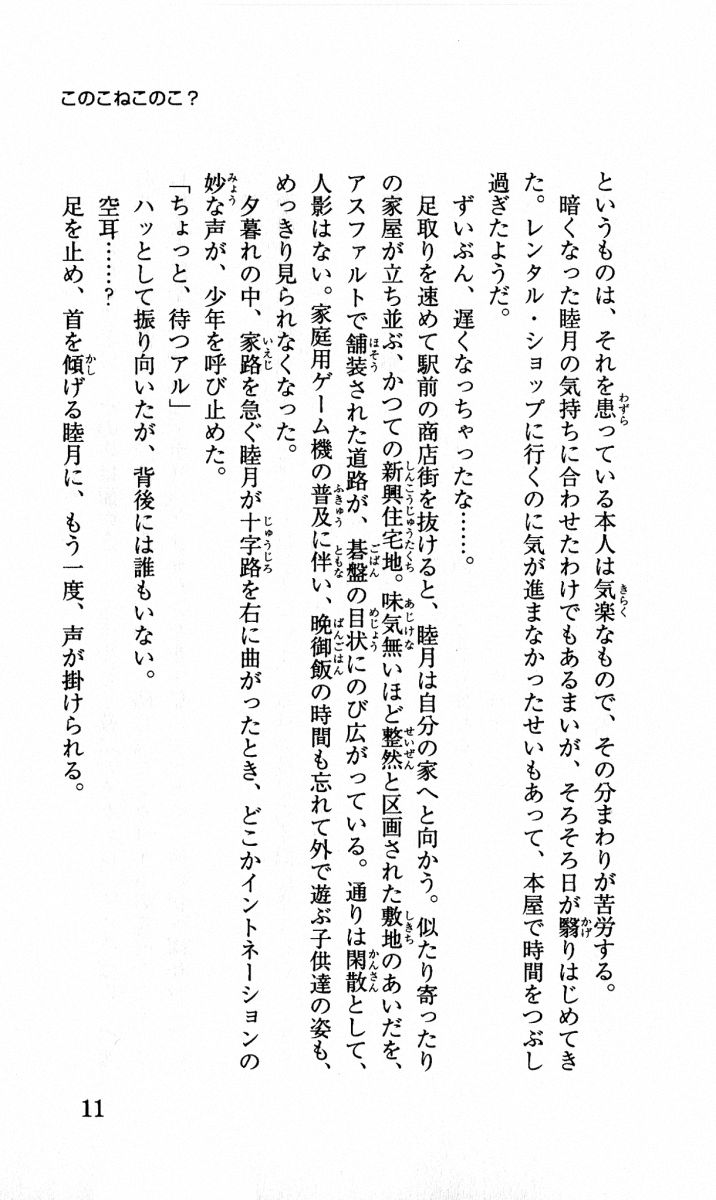 このこねこのこ？
というものは、それを患っている本人は気楽なもので、その分まわりが苦労する。
暗くなった睦月の気持ちに合わせたわけでもあるまいが、そろそろ日が翳りはじめてき
た。レンタル・ショップに行くのに気が進まなかったせいもあって、本屋で時間をつぶし
過ぎたようだ。
ずいぶん、遅くなっちゃったな……。
足取りを速めて駅前の商店街を抜けると、睦月は自分の家へと向かう。似たり寄ったり
の家屋が立ち並ぶ、かつての新興住宅地。味気無いほど整然と区画された敷地のあいだを、
アスファルトで舗装された道路が、碁盤の目状にのび広がっている。通りは閑散として、
人影はない。家庭用ゲーム機の普及に伴い、晩御飯の時間も忘れて外で遊ぶ子供達の姿も、
めっきり見られなくなった。
夕暮れの中、家路を急ぐ睦月が十字路を右に曲がったとき、どこかイントネーションの
妙な声が、少年を呼び止めた。
「ちょっと、待つアル」
ハッとして振り向いたが、背後には誰もいない。
空耳……？
足を止め、首を傾げる睦月に、もう一度、声が掛けられる。
11